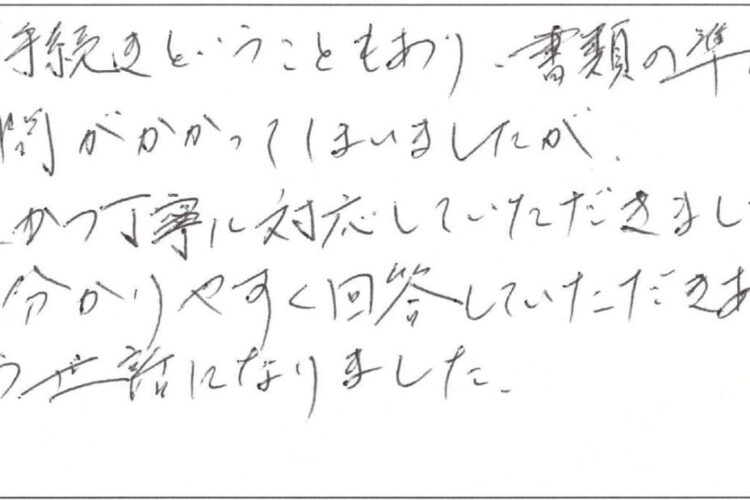 手続きということもあり、書類の準
間がかかってしまいましたが、
かつ丁寧に対応していただきまし
分かりやすく回答していただきあ
世話になりました。